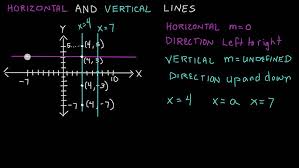 HORIZONTAL AND VERTICAL LINES
x=4 x=7
Y
5 (4,5)
(4,3)
-7 10 X
(4,-3)
-7 (4,-7)
HORIZONTAL m=0
DIRECTION Left to right
VERTICAL m=UNDEFINED
DIRECTION up and down
x=4 x=a x=7